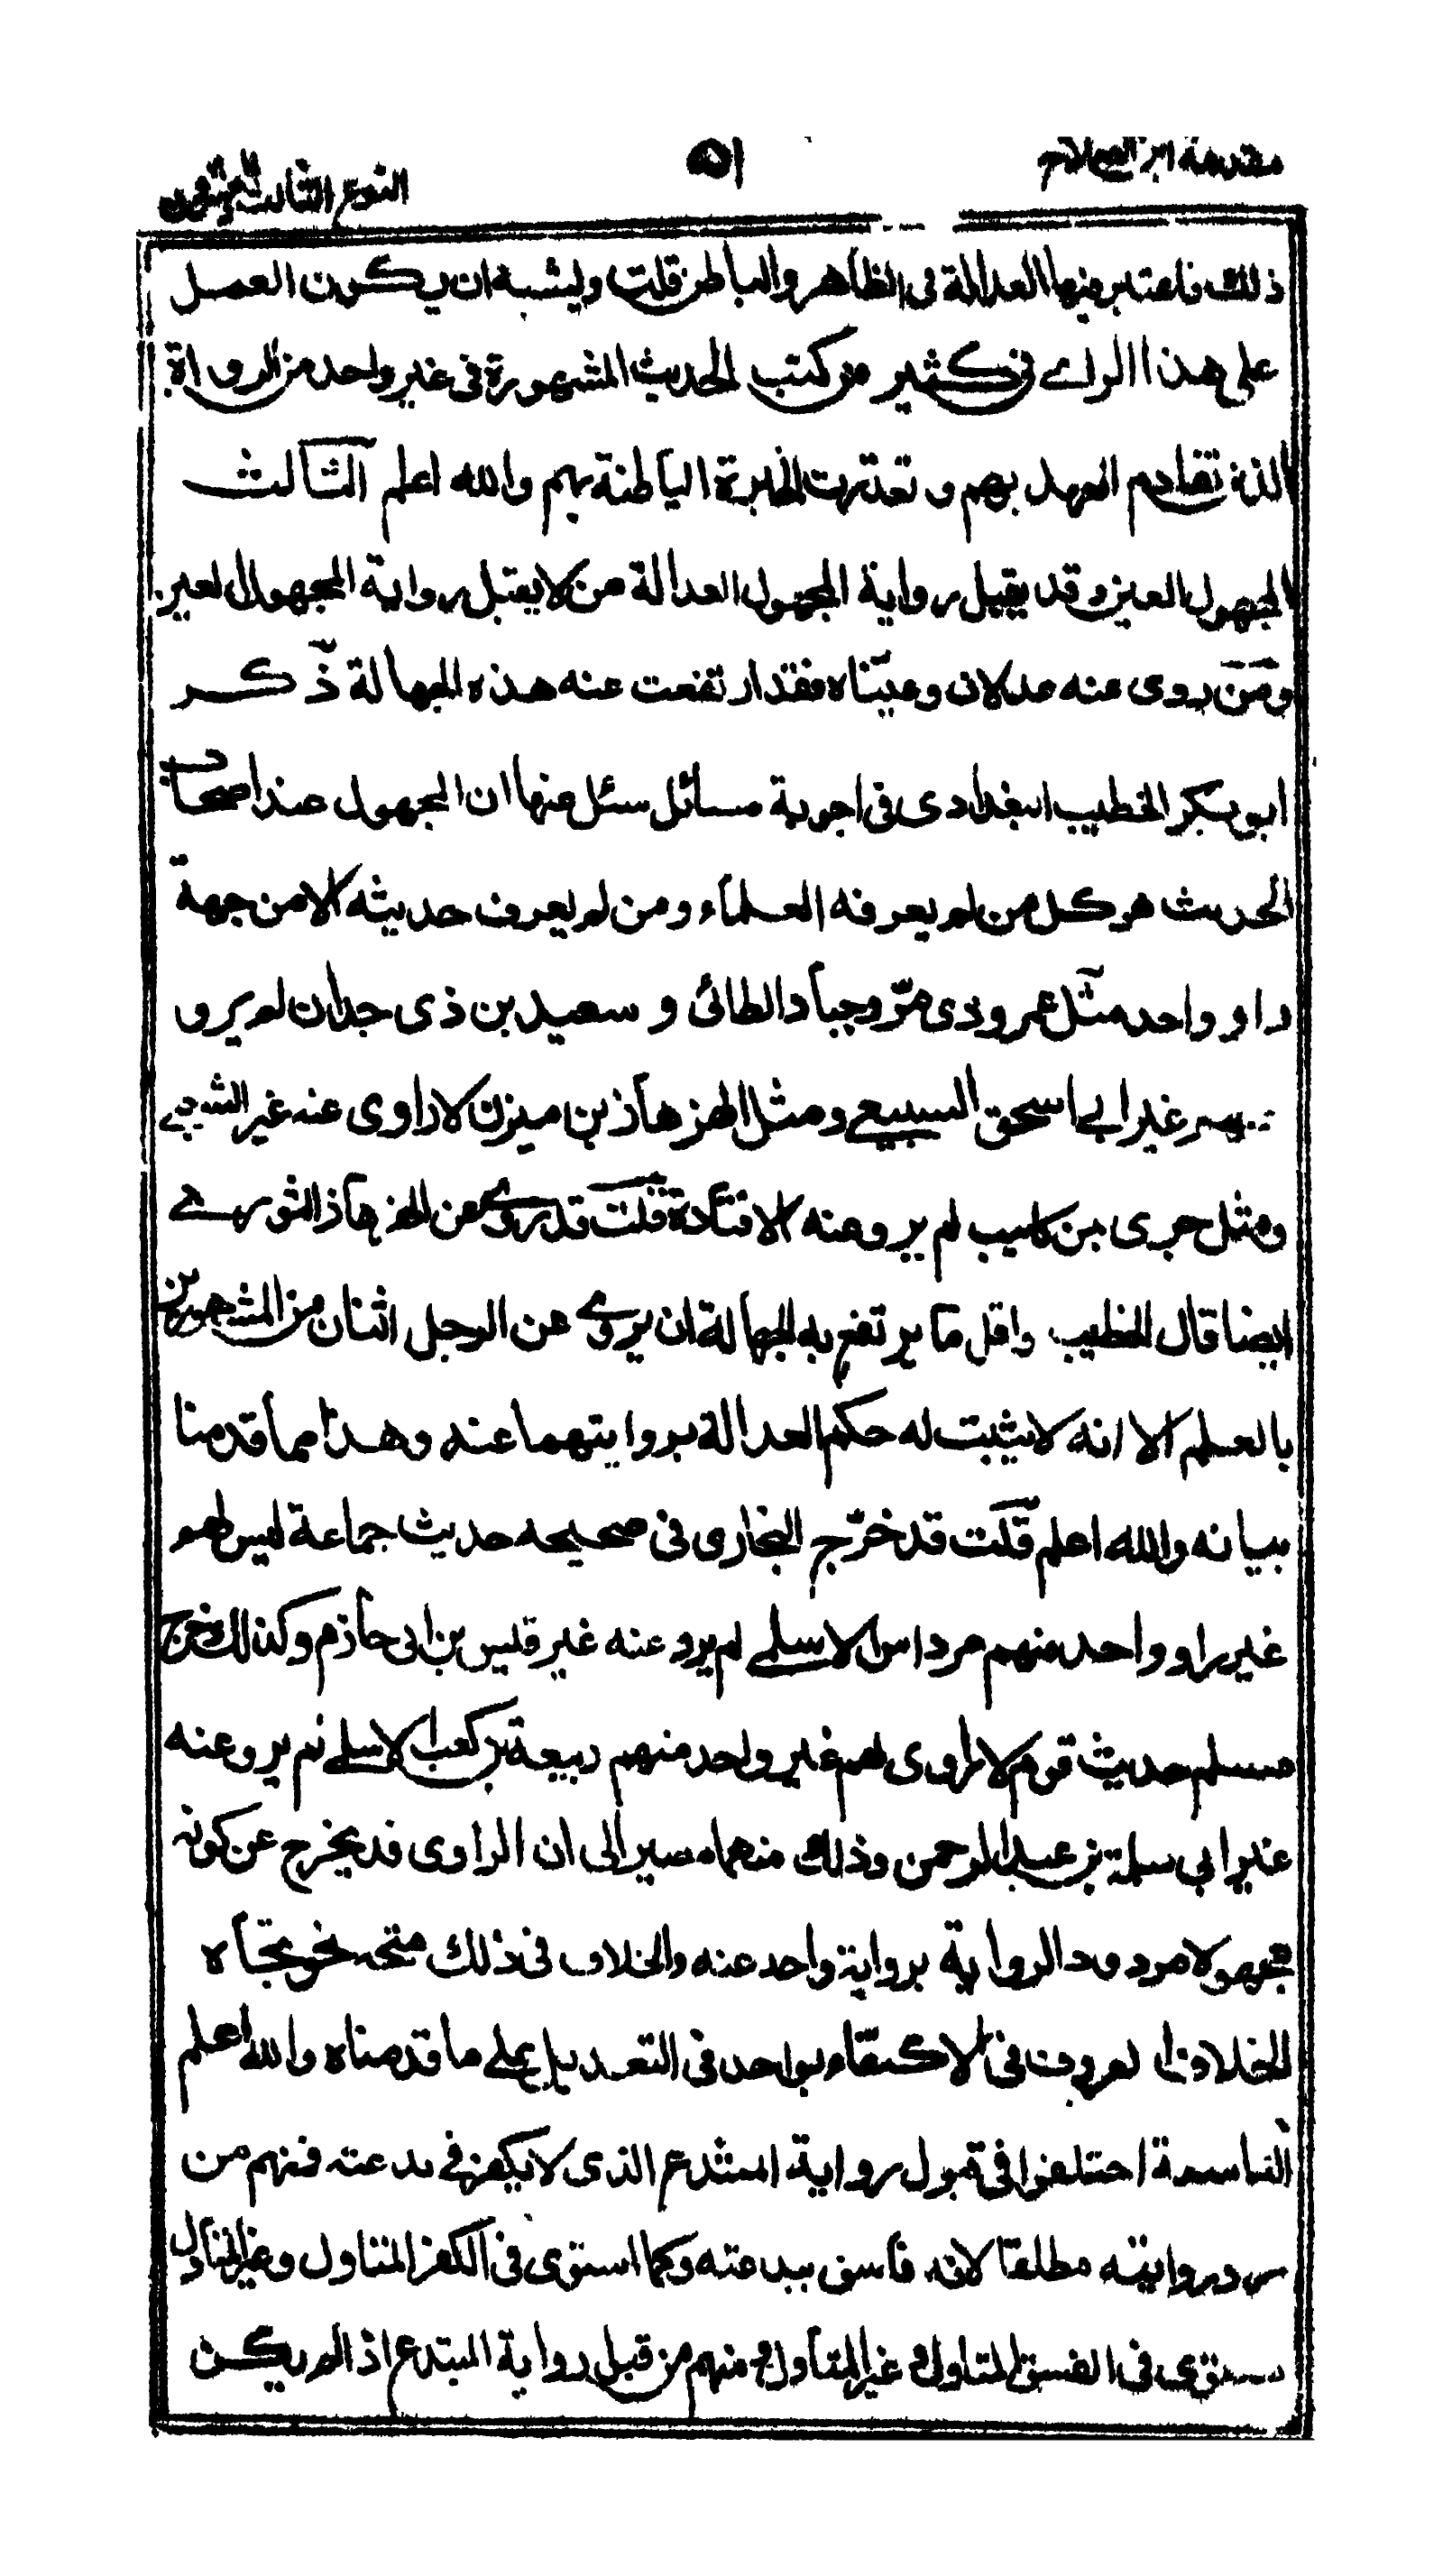 مقدمة ابن الصلاح
۵۱
النوع الثالث والعشرون
ذلك فاعتبر فيها العدالة في الظاهر والباطن قلت ويشبه ان يكون العمل
على هذا الراے في كثير من كتب الحديث المشهورة في غير واحد من الرواة
الذين تقادم العهد بهم و تعذرت الخبرة الباطنة بهم والله اعلم الثالث
المجهول العين وقد يقبل رواية المجهول العدالة من لا يقبل رواية المجهول العين
ومن روى عنه عدلان وعيّناه فقد ارتفعت عنه هذه الجهالة ذكر
ابو بكر الخطيب البغدادى في اجوبة مسائل سئل عنها ان المجهول عند اصحاب
الحديث هو كل من لم يعرفه العلماء ومن لم يعرف حديثه الا من جهة
راو واحد مثل عمرو ذى مرّ وجبار الطائى و سعيد بن ذى حدان لم يرو
عنهم غير ابي اسحق السبيعے ومثل الهزهاز بن ميزن لا راوى عنه غير الشعبے
ومثل جرى بن كليب لم يرو عنه الا قتادة قلت قد روى عن الهزهاز الثورے
ايضا قال الخطيب واقل ما يرتفع به الجهالة ان يروے عن الرجل اثنان من المشهورين
بالعلم الا انه لا يثبت له حكم العدالة بروايتهما عنه وهذا مما قدمنا
بيانه والله اعلم قلت قد خرّج البخارى في صحيحه حديث جماعة ليس لهم
غير راو واحد منهم مرداس الاسلمے لم يرو عنه غير قيس بن ابى حازم وكذلك خرج
مسلم حديث قوم لا راوى لهم غير واحد منهم ربيعة بن كعب الاسلمے لم يرو عنه
غير ابي سلمة بن عبد الرحمن وذلك منهما مصير الى ان الراوى قد يخرج عن كونه
مجهولا مردود الرواية برواية واحد عنه والخلاف في ذلك متجه نحو اتجاه
الخلاف المعروف في الاكتفاء بواحد في التعديل على ما قدمناه والله اعلم
التاسعة اختلفوا في قبول رواية المبتدع الذى لا يكفر في بدعته فمنهم من
رد روايته مطلقا لانه فاسق ببدعته وكما استوى في الكفر المتاول وغير المتاول
يستوى في الفسق المتاول و غير المتاول و منهم من قبل رواية المبتدع اذا لم يكن